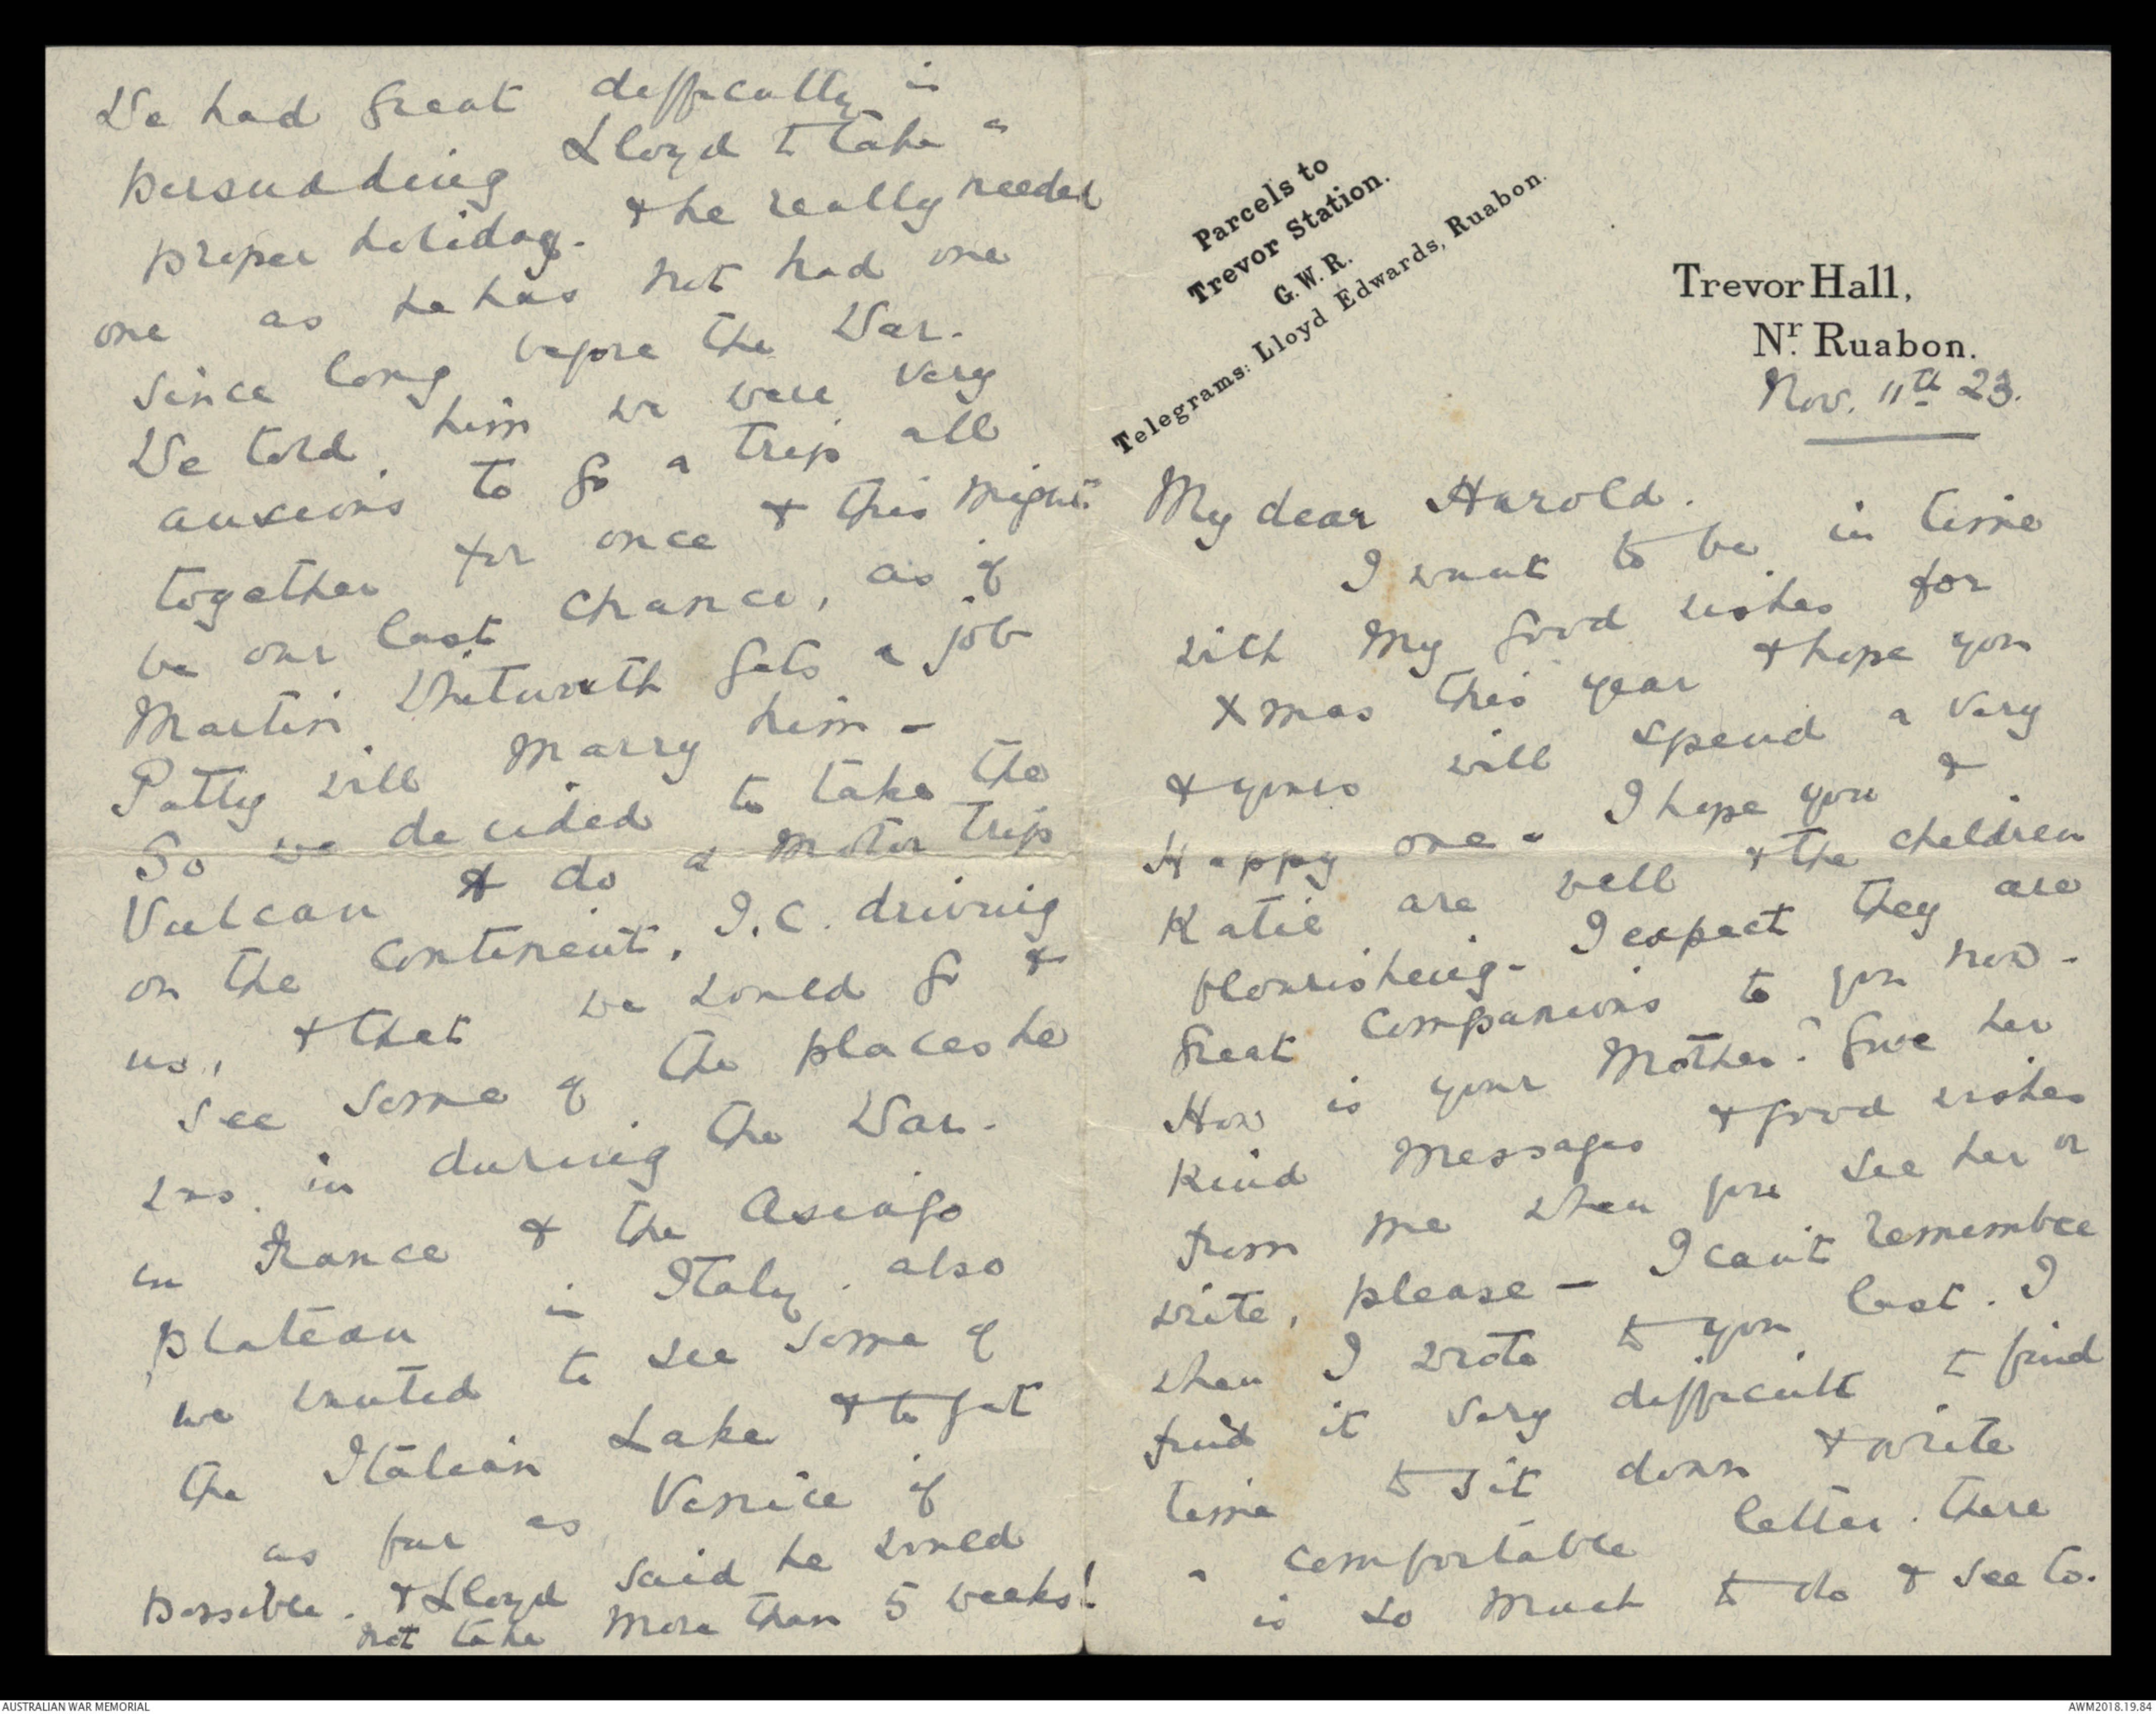 Parcels to
Trevor Station.
G. W. R.
Telegrams: Lloyd Edwards, Ruabon.
Trevor Hall,
Nr. Ruabon.
Nov. 11th 23.
My dear Harold.
I want to be in time
with my good wishes for
Xmas this year & hope you
& yours will spend a very
Happy one - I hope you &
Katie are well & the children
flourishing - I expect they are
great companions to you now -
How is your Mother? Give her
kind messages & good wishes
from me when you see her or
write, please - I can't remember
when I wrote to you last. I
find it very difficult to find
time to sit down & write
a comfortable letter. There
is so much to do & see to.
We had great difficulty in
persuading Lloyd to take a
proper holiday. & he really needed
one as he has not had one
since long before the War.
We told him we were very
anxious to go a trip all
together for once & this might
be our last chance, as if
Martin Whitworth gets a job
Patty will marry him -
So we decided to take the
Vulcan & do a motor trip
on the continent, I.C. driving
us, & that we would go &
see some of the places he
was in during the War.
in France & the Asiago
plateau in Italy. also
we wanted to see some of
the Italian Lake & to get
as far as Venice if
possible. & Lloyd said he would
not take more than 5 weeks!
AUSTRALIAN WAR MEMORIAL
AWM2018.19.84